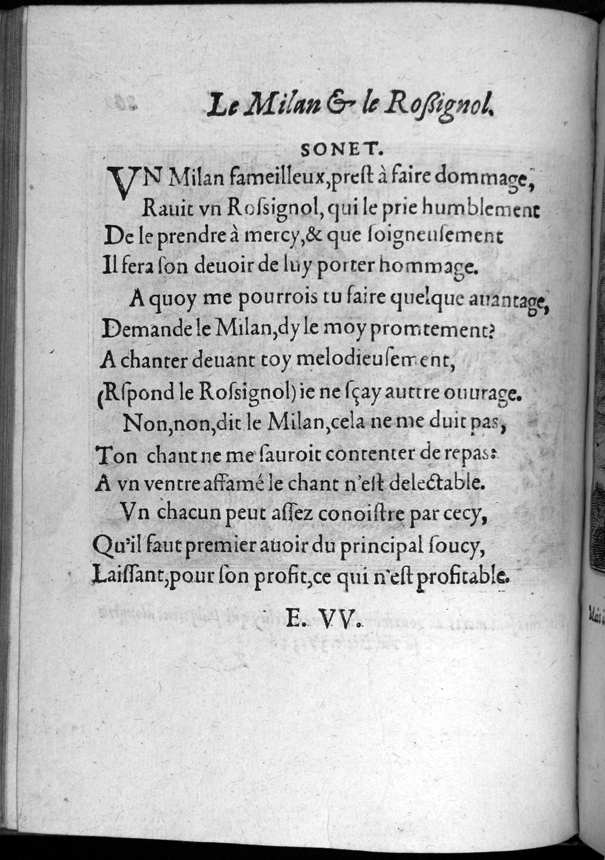 Le Milan & le Roßignol.
SONET.
VN Milan fameilleux, prest à faire dommage,
Rauit vn Rossignol, qui le prie humblement
De le prendre à mercy, & que soigneusement
Il fera son deuoir de luy porter hommage.
A quoy me pourrois tu faire quelque auantage,
Demande le Milan, dy le moy promtement?
A chanter deuant toy melodieusement,
(Rspond le Rossignol) ie ne sçay auttre ouurage.
Non, non, dit le Milan, cela ne me duit pas,
Ton chant ne me sauroit contenter de repas:
A vn ventre affamé le chant n'est delectable.
Vn chacun peut assez conoistre par cecy,
Qu'il faut premier auoir du principal soucy,
Laissant, pour son profit, ce qui n'est profitable.
E. VV.